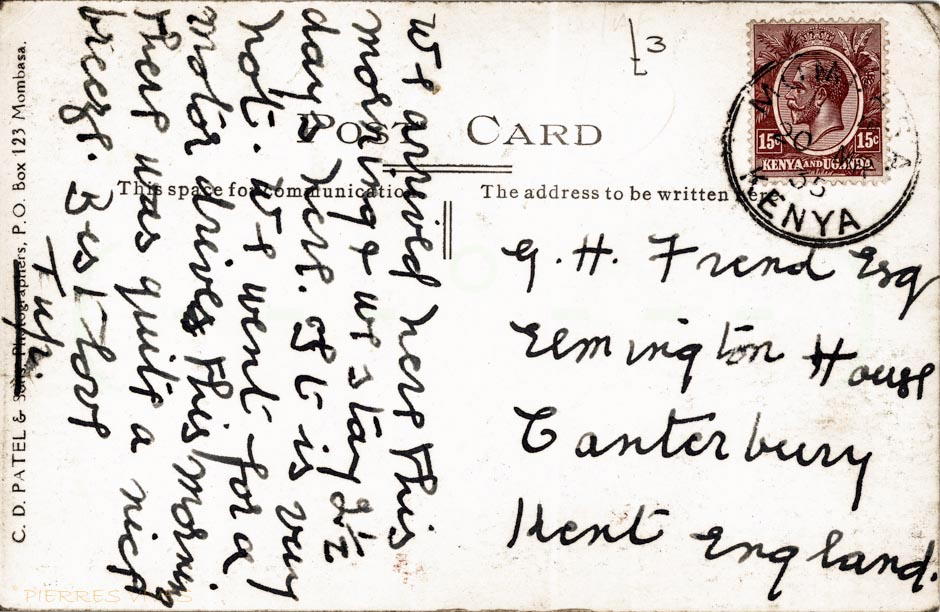 C. D. PATEL & Sons, Photographers, P.O. Box 123 Mombasa.
POST CARD
This space for communication
The address to be written here
We arrived here this
morning & we stay 2½
days here. It is very
hot. We went for a
motor drive this morning
there was quite a nice
breeze. Best love
Tup.
G. H. Frend Esq
Elmington House
Canterbury
Kent England.
£3
MOMBASA
20
35
KENYA
15c 15c
KENYA AND UGANDA
PIERRES